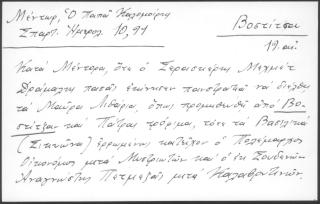 Μέντωρ, Ὁ Παπᾶ Καλομοίρης
Σπαρτ. Ἡμερολ. 10, 91
Βοστίτσα
19. αἰ.
Κατὰ Μέντορα, ὅτε ὁ Σερασκιέρης Μεχμέτ
Δράμαλης πασᾶς ἐκίνησεν πανστρατιᾷ νὰ διέλθῃ
τὰ Μαῦρα Λιθάρια, ὅπως προμηθευθῇ ἀπὸ Βο-
στίτζαν καὶ Πάτρας τρόφιμα, τότε τὰ Βασιλικὰ
(Σικυῶνα) ἐρρωμένως κατεῖχον ὁ Πολέμαρχος
Οἰκονόμος μετὰ Μυστριωτῶν καὶ ὁ ἐκ Σουδενῶν
Ἀναγνώστης Πετμεζᾶς μετὰ Καλαβρυτινῶν.